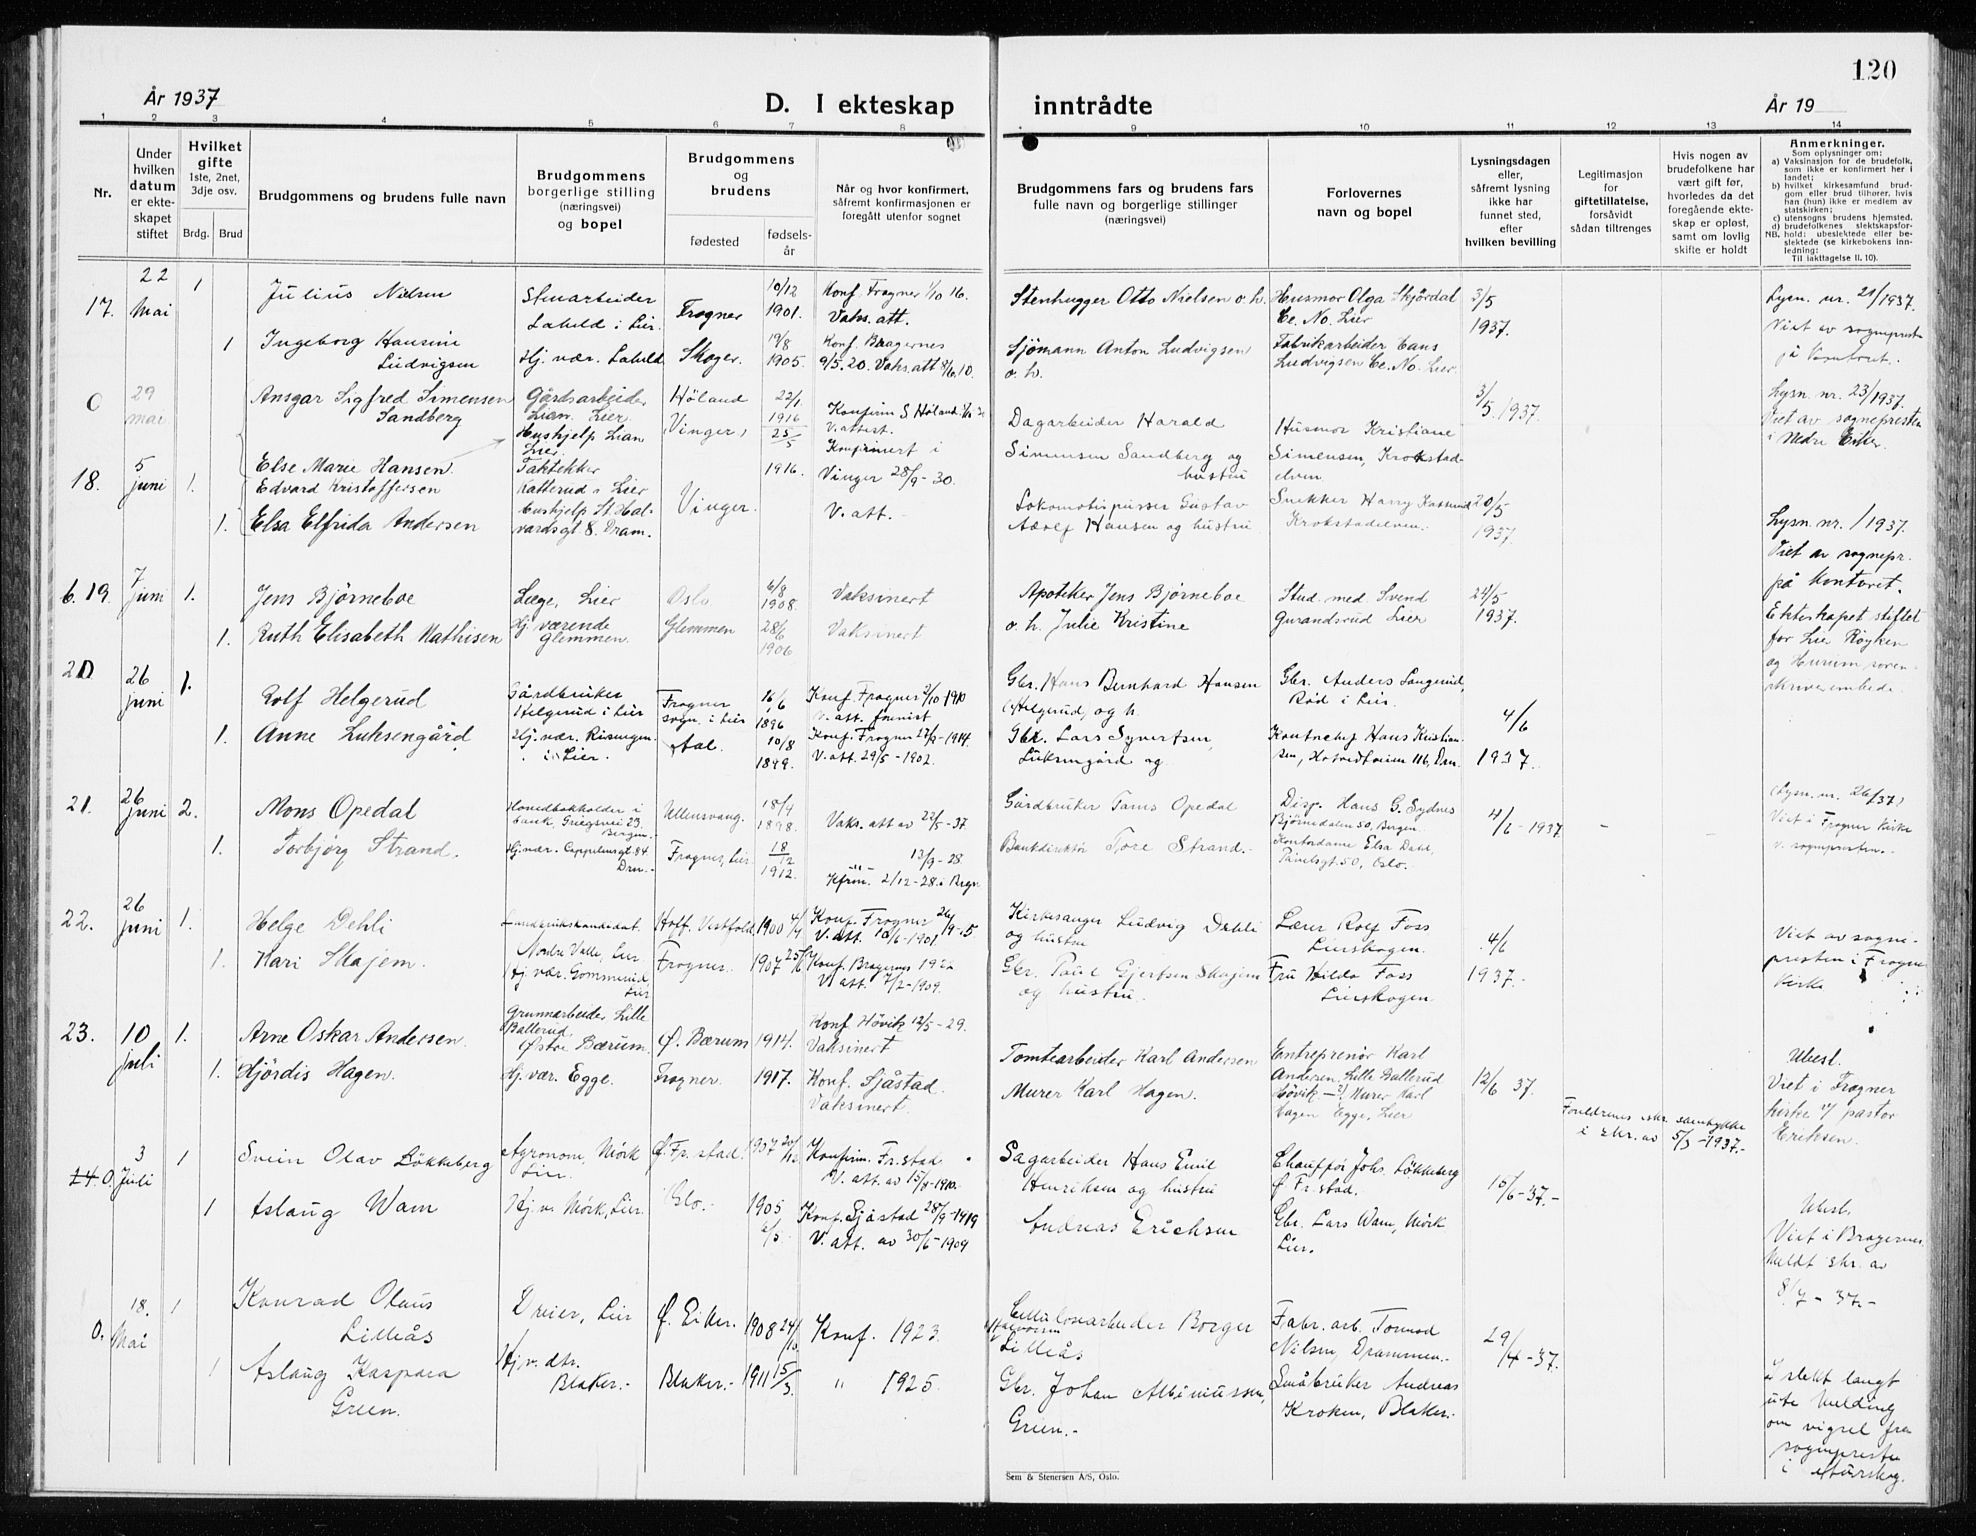 120
År 1937
D. I ekteskap inntrådte
År 19
1 2 3 4 5 6 7 8 9 10 11 12 13 14
Nr.
Under hvilken datum er ekteskapet stiftet
Hvilket gifte
1ste, 2net, 3dje osv.
Brdg. Brud
Brudgommens og brudens fulle navn
Brudgommens borgerlige stilling (næringsvei) og bopel
Brudgommens og brudens
fødested
fødselsår
Når og hvor konfirmert, såfremt konfirmasjonen er foregått utenfor sognet
Brudgommens fars og brudens fars fulle navn og borgerlige stillinger (næringsvei)
Forlovernes navn og bopel
Lysningsdagen eller, såfremt lysning ikke har funnet sted, efter hvilken bevilling
Legitimasjon for giftetillatelse, forsåvidt sådan tiltrenges
Hvis nogen av brudefolkene har vært gift før, hvorledes da det foregående ekteskap er opløst, samt om lovlig skifte er holdt
Anmerkninger.
Som oplysninger om:
a) Vaksinasjon for de brudefolk, som ikke er konfirmert her i landet;
b) hvilket kirkesamfund brudgom eller brud tilhører, hvis han (hun) ikke er medlem av statskirken;
c) utensogns brudens hjemsted.
d) brudefolkenes slektskapsforhold: ubeslektede eller beslektede (se kirkebokens innledning:
NB.
Til iakttagelse II. 10).
17. 22 Mai 1
Julius Nielsen
Stenarbeider
Frogner
10/12 1901.
Konf. Frogner 1/10 16.
Vaks. att.
Stenhugger Otto Nielsen o. h.
Husmor Olga Skjørdal
3/5 1937.
Lysn. nr. 21/1937.
1
Ingeborg Hansine Ludvigsen
Hj. vær.
Skoger.
1905.
Konf. Bragernes
9/5. 20. Vaks. att
Sjömann Anton Ludvigsen o. h.
Fabrikarbeider Hans
Ludvigsen
29 mai
Ansgar Sigfred Simensen Sandberg
Gårdsarbeider
Lian. Lier
Höland
22/1 1916
V. attest.
Dagarbeider Harald
Simensen Sandberg og hustru
Husmor Kristiane
Simensen, Krokstadelven.
3/5 1937.
Lysn. nr. 23/1937.
Viet av sognepresten
i Nedre Eiker.
Else Marie Hansen.
Hushjelp Lian Lier.
Vinger
25/5 1916.
Konfirmert i
Vinger 28/9 - 30.
V. att.
Lokomotivpusser Gustav
Adolf Hansen og hustru
Snekker Harry
Krokstadelven.
18. 5 juni 1.
Edvard Kristoffersen
Taktekker
Katterud i Lier
Vinger.
20/5 1937.
Lysn. nr. /1937.
1.
Elsa Elfrida Andersen
Hushjelp St. Halvardsgt 8. Dram.
Viet av sognepr.
på kontoret.
6. 19. 7 juni 1.
Jens Bjørneboe
Læge, Lier
Oslo
6/8 1908.
Vaksinert
Apoteker Jens Bjørneboe
o. h. Julie Kristine
Stud. med. Svend
Gurandsrud Lier
24/5 1937.
Ekteskapet stiftet
for Lier Røyken
og Hurum sorenskriverembede.
1.
Ruth Elisabeth Mathisen
Hj. værende
Glemmen.
Glemmen
28/6 1906
Vaksinert
20 26 juni 1.
Rolf Helgerud
Gårdbruker
Helgerud i Lier
Frogner
sogn. i Lier
16/6 1896
Konf. Frogner 2/10-1910
Gbr. Hans Bernhard Hansen
Helgerud, og h.
Gbr. Anders Langerud,
Rød i Lier.
4/6 1937.
1.
Anne Luksengård
Hj. vær. Risingen
i Lier.
Aal.
10/8 1899.
V. att. 29/5 - 1902.
Gbr. Lars Syvertsen
Luksengård og
Kontrchef Hans Kristiansen,
21. 26 juni 2.
Mons Opedal
Hovedbokholder i
bank, Griegsvei 23. Bergen.
Ullensvang.
18/4 1898.
Vaks. att av 22/5 - 37
Gårdbruker Tams Opedal
Disp. Hans G. Sydnes
Bjørnedalen 50, Bergen.
4/6 - 1937
(Lysn. nr. 26/37)
Viet i Frogner kirke
v. sognepresten.
1.
Torbjørg Strand.
Hj. vær. Cappelensgt. 84 Drm.
Frogner, Lier
18/12 1912.
12/9 - 28
Kfrm. 2/12 - 28 i Bergn
Bankdirektør Tore Strand.
Kontordame Elsa Dahl,
22. 26 juni 1.
Helge Dehli
Landbrukskandidat.
Nordre Valle, Lier
Hoff. Vestfold
1900
Konf. Frogner 26/9-15
Kirkesanger Ludvig Dehli
og hustru
Lærer Rolf Foss
Lierskogen.
4/6 1937.
Viet av sognepresten i Frogner
kirke
1.
Kari Skajem.
Hj. vær. Gommerud,
Lier
Frogner.
1907
Konf. Bragernes 1922
V. att. 7/2 - 1909.
Gbr. Paul Gjertsen Skajem
og hustru.
Fru Hilda Foss
Lierskogen
23. 10 juli 1.
Arne Oskar Andersen.
Grunnarbeider Lille
Ballerud
Østre Bærum.
Ø. Bærum
1914.
Konf Høvik 12/5 - 29.
Vaksinert
Tomtearbeider Karl Andersen
Entreprenör Karl
Andersen, Lille Ballerud
Høvik
12/6 37.
Ubesl.
Viet i Frogner
kirke v/ pastor
Eriksen.
1.
Hjördis Hagen.
Hj. vær. Egge.
Frogner.
1917.
Konf. Sjåstad.
Vaksinert.
Murer Karl Hagen.
Murer Karl
Hagen Egge, Lier
Foreldrenes skr. samtykke
i skr. av 5/3 - 1937.
24. 0. 3 Juli 1
Svein Olav Løkkeberg
Agronom, Mörk
Lier.
Ø. Fr. stad.
1907
Konfirm. Fr. stad
V. att. av 15/8 - 1910.
Sagarbeider Hans Emil
Henriksen og hustru
Chauffør Johs. Løkkeberg
Ø. Fr. stad.
15/6 - 37.
1
Aslaug Wam
Hj. v. Mörk, Lier.
Oslo.
1905
Konf. Sjåstad 28/9 - 1919
V. att. av 30/6 - 1909
Andreas Erichsen
Gbr. Lars Wam, Mörk
Lier.
Ubesl.
Viet i Bragernes.
Meldt skr. av
8/7 - 37.
0. 18. Mai 1
Konrad Olaus Lilleås
Dreier, Lier
Ø. Eiker.
1908
Konf. 1923.
Cellulosearbeider Borger
Lilleås
Fabr. arb. Tormod
Nilsen, Drammen.
29/4 - 37.
1
Aslaug Kaspara Green.
Hj. v. dtr.
Blaker.
Blaker.
1911 15/3.
" 1925.
Gbr. Johan Albinussen
Green.
Småbruker Andreas
Kroken, Blaker.
I slekt langt
ute Melding
om vigsel fra
sognepresten
i Aurskog.
Sem & Stenersen A/S, Oslo.